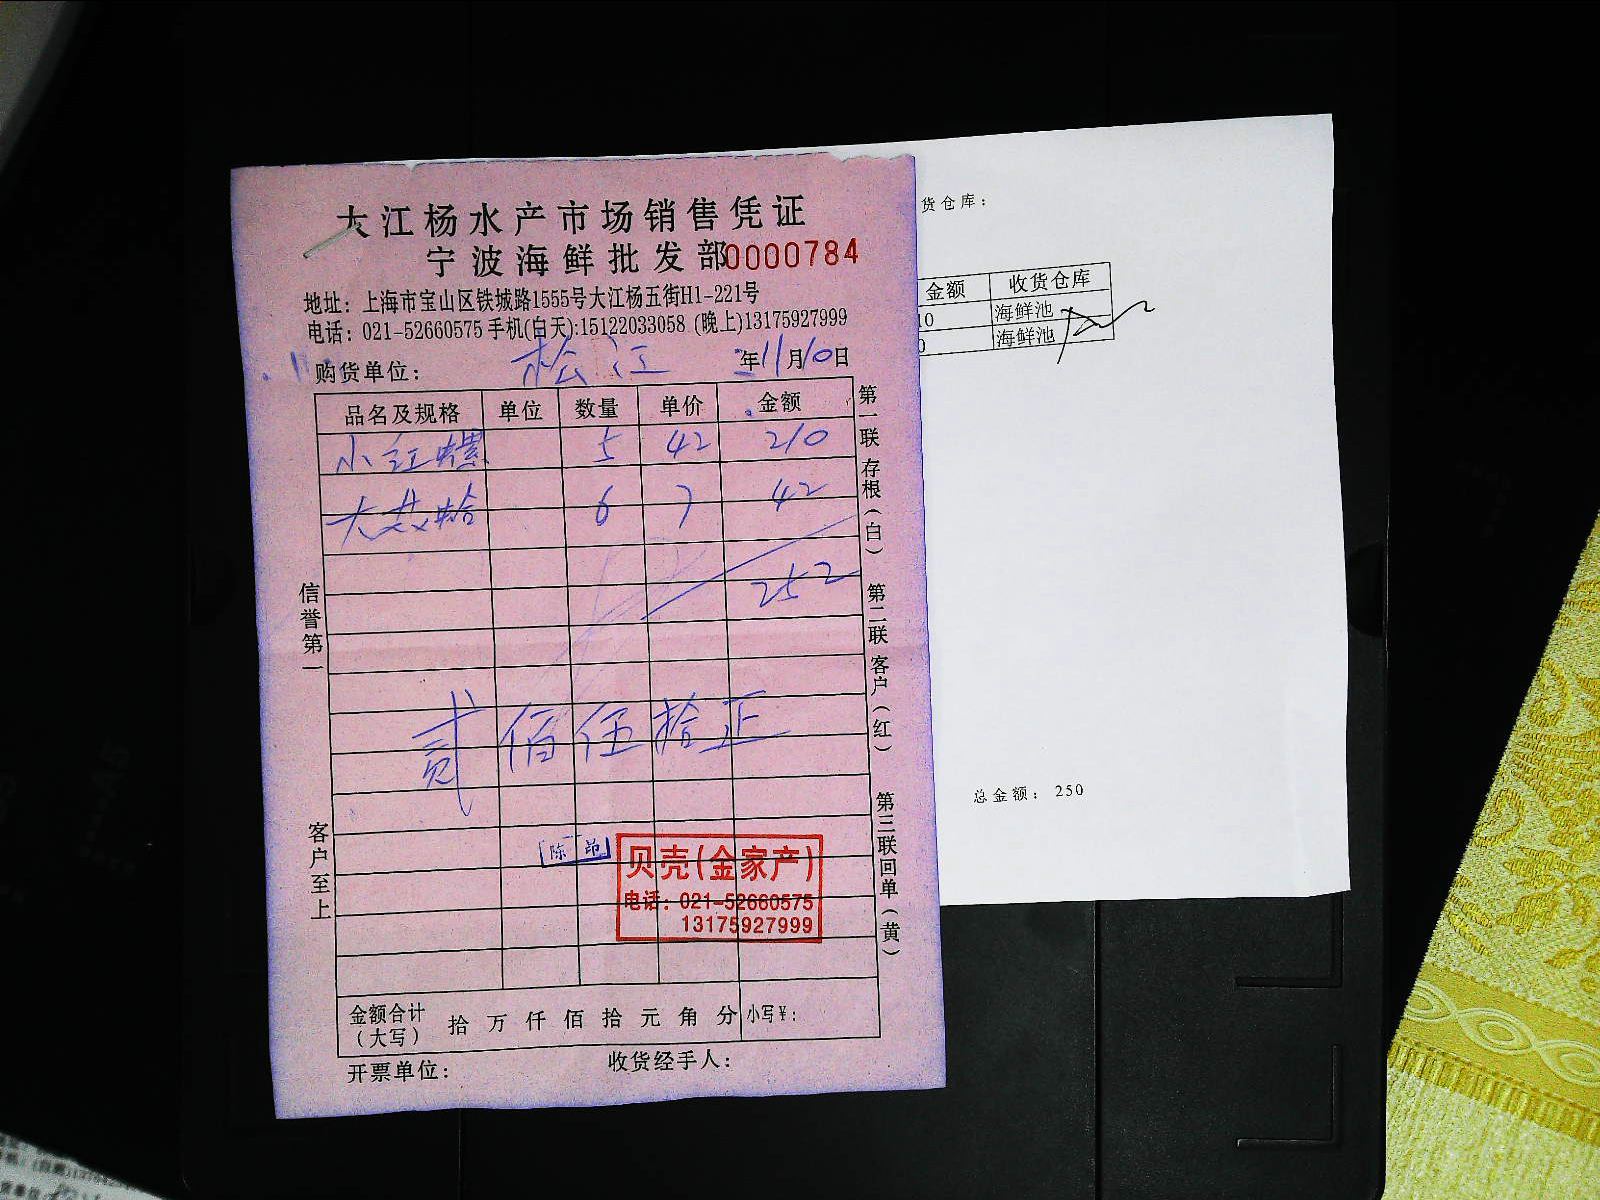 大江杨水产市场销售凭证
宁波海鲜批发部0000784
地址：上海市宝山区铁城路1555号大江杨五街H1-221号
电话：021-52660575 手机(白天):15122033058 (晚上)13175927999
购货单位：松江 年11月10日
品名及规格 单位 数量 单价 金额
小红螺 5 42 210
大花蛤 6 7 42
252
贰佰伍拾正
陈 印
贝壳(金家产)
电话：021-52660575
13175927999
金额合计(大写) 拾 万 仟 佰 拾 元 角 分 小写￥：
开票单位： 收货经手人：
信誉第一
客户至上
第一联存根(白)
第二联客户(红)
第三联回单(黄)
货仓库：
金额 收货仓库
10 海鲜池
0 海鲜池
总金额：250